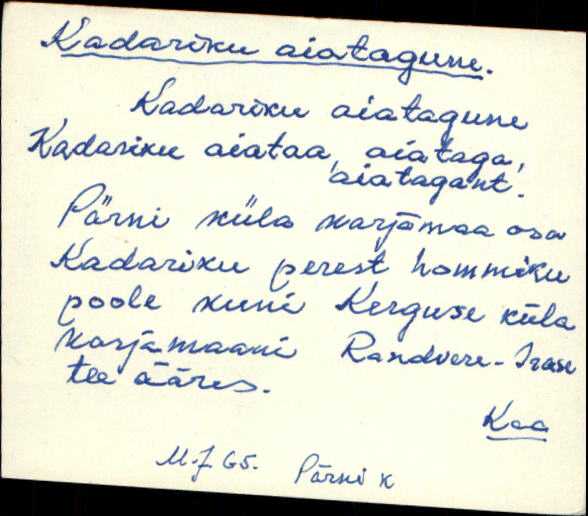 Kadariku aiatagune.
Kadariku aiatagune
Kadariku aiataa, aiataga,
aiatagant.
Pärni küla karjamaa osa
Kadariku perest hommiku
poole kuni Kerguse küla
karjamaani Randvere-Irase
tee ääres.
Kaa
M.J 65. Pärni k